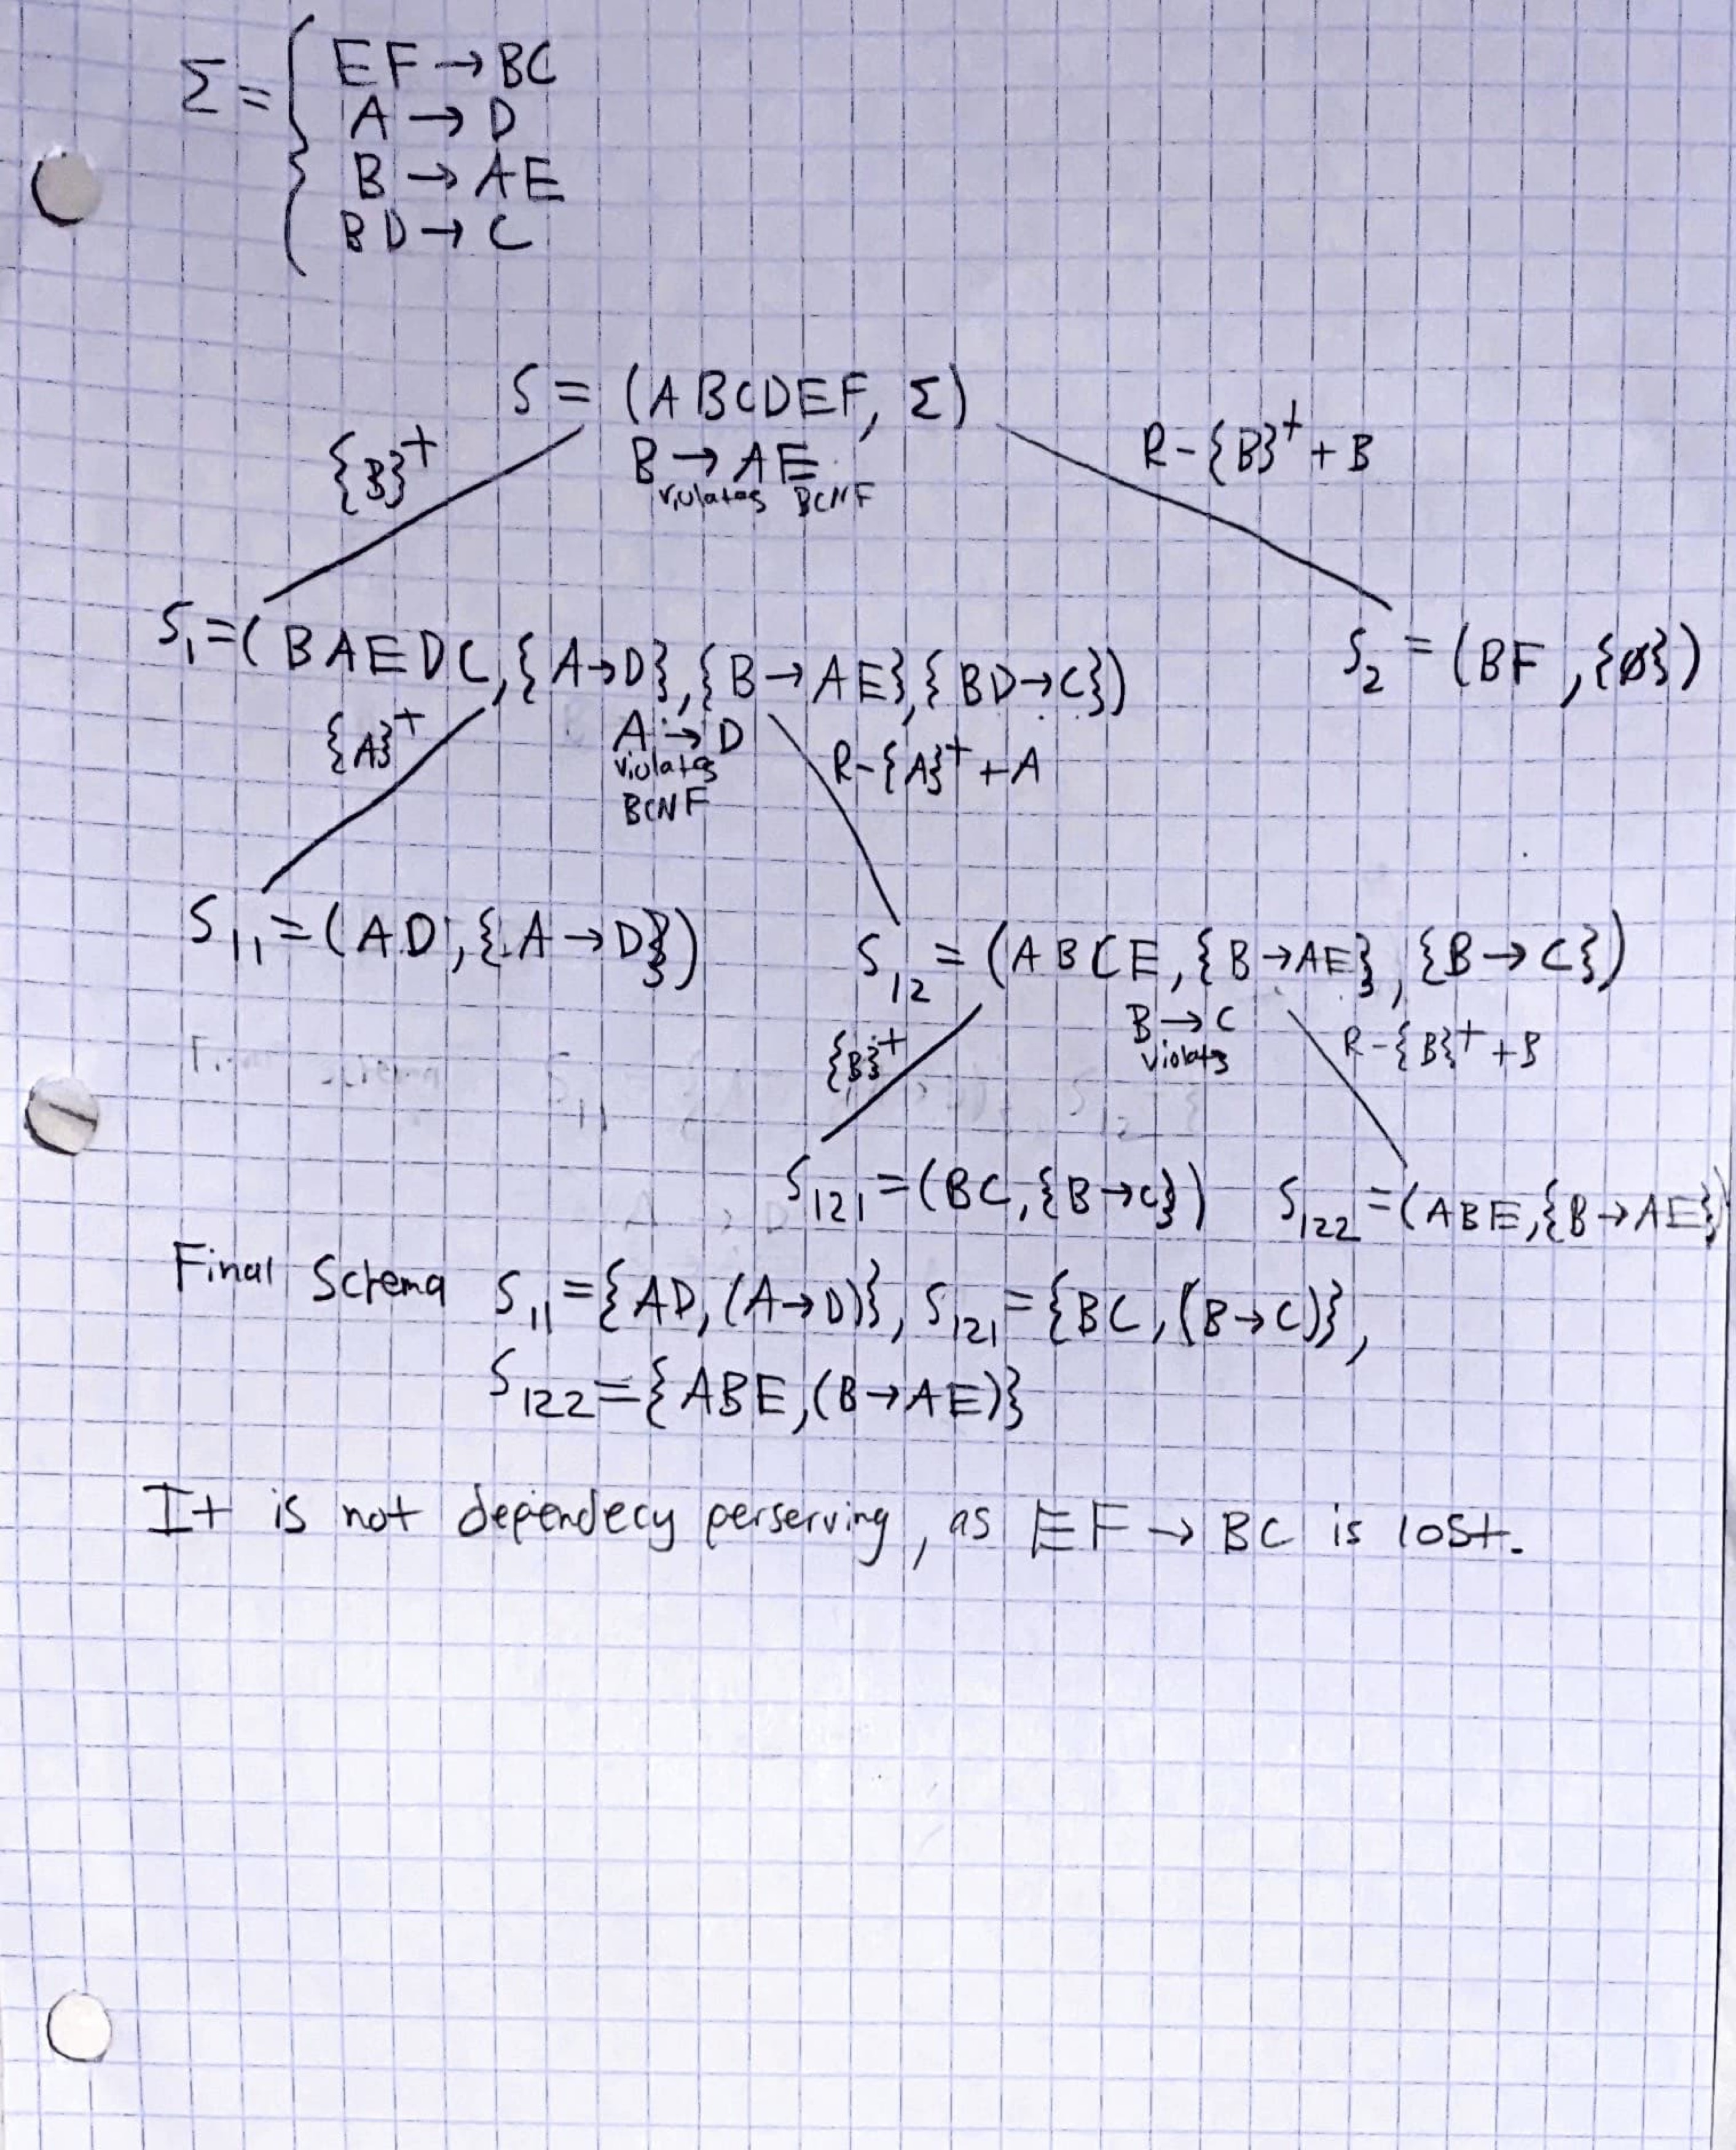 Σ = { EF → BC
A → D
B → AE
BD → C
S = (ABCDEF, Σ)
{B}⁺
B → AE
violates BCNF
R-{B}⁺+B
S₁=(BAEDC,{A→D},{B→AE},{BD→C})
S₂=(BF,{ø})
{A}⁺
A → D
violates
BCNF
R-{A}⁺+A
S₁₁=(AD,{A→D})
S₁₂=(ABCE,{B→AE},{B→C})
{B}⁺
B→C
violates
R-{B}⁺+B
S₁₂₁=(BC,{B→C})
S₁₂₂=(ABE,{B→AE})
Final Schema S₁₁={AD,(A→D)}, S₁₂₁={BC,(B→C)},
S₁₂₂={ABE,(B→AE)}
It is not dependecy perserving, as EF → BC is lost.